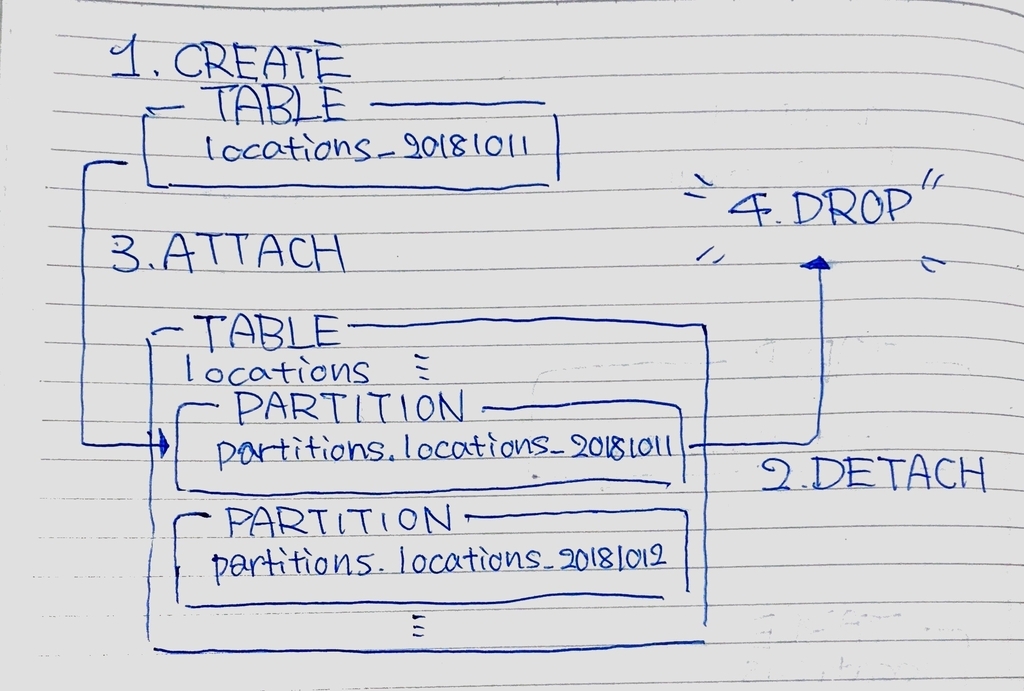 1. CREATE
TABLE
locations_20181011
"4. DROP"
3. ATTACH
TABLE
locations
PARTITION
partitions.locations_20181011
2. DETACH
PARTITION
partitions.locations_20181012